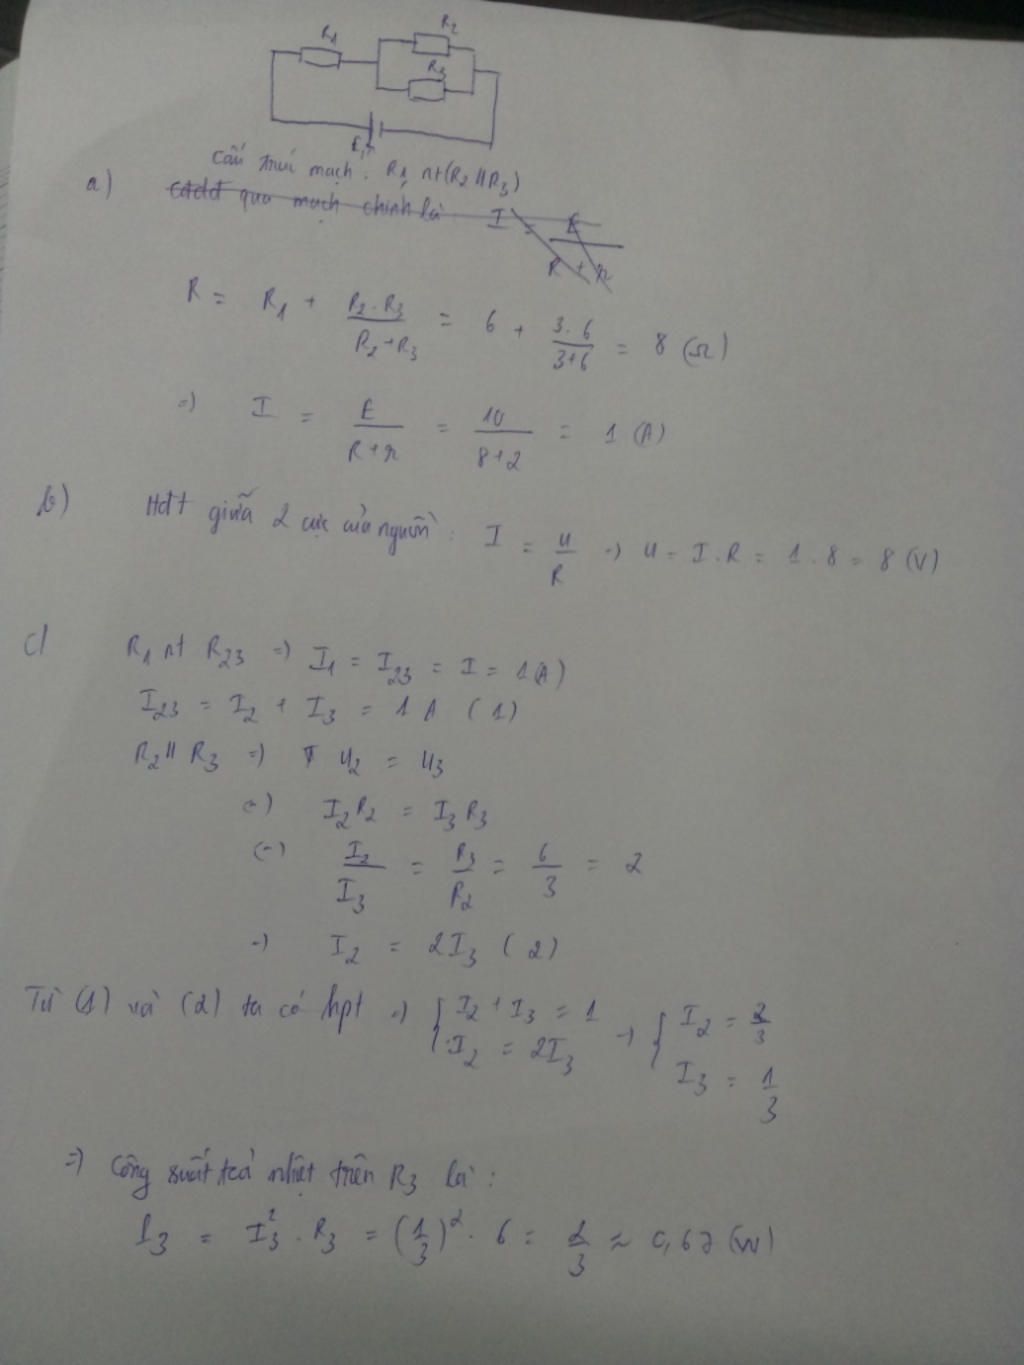 R1
R2
R3
E, r
Cấu trúc mạch: R1 nt (R2 // R3)
a) Cđdđ qua mạch chính là: I = E / (R + r)
R = R1 + (R2 . R3) / (R2 + R3) = 6 + (3 . 6) / (3+6) = 8 (Ω)
=) I = E / (R + r) = 10 / (8+2) = 1 (A)
b) Hđt giữa 2 cực của nguồn: I = U / R =) U = I . R = 1 . 8 = 8 (V)
c) R1 nt R23 =) I1 = I23 = I = 1 (A)
I23 = I2 + I3 = 1 A (1)
R2 // R3 =) U2 = U3
(=) I2 R2 = I3 R3
(=) I2 / I3 = R3 / R2 = 6 / 3 = 2
=) I2 = 2I3 (2)
Từ (1) và (2) ta có hpt =) { I2 + I3 = 1 ; I2 = 2I3 =) { I2 = 2/3 ; I3 = 1/3
=) Công suất toả nhiệt trên R3 là:
P3 = I3² . R3 = (1/3)² . 6 = 2/3 ≈ 0,67 (W)